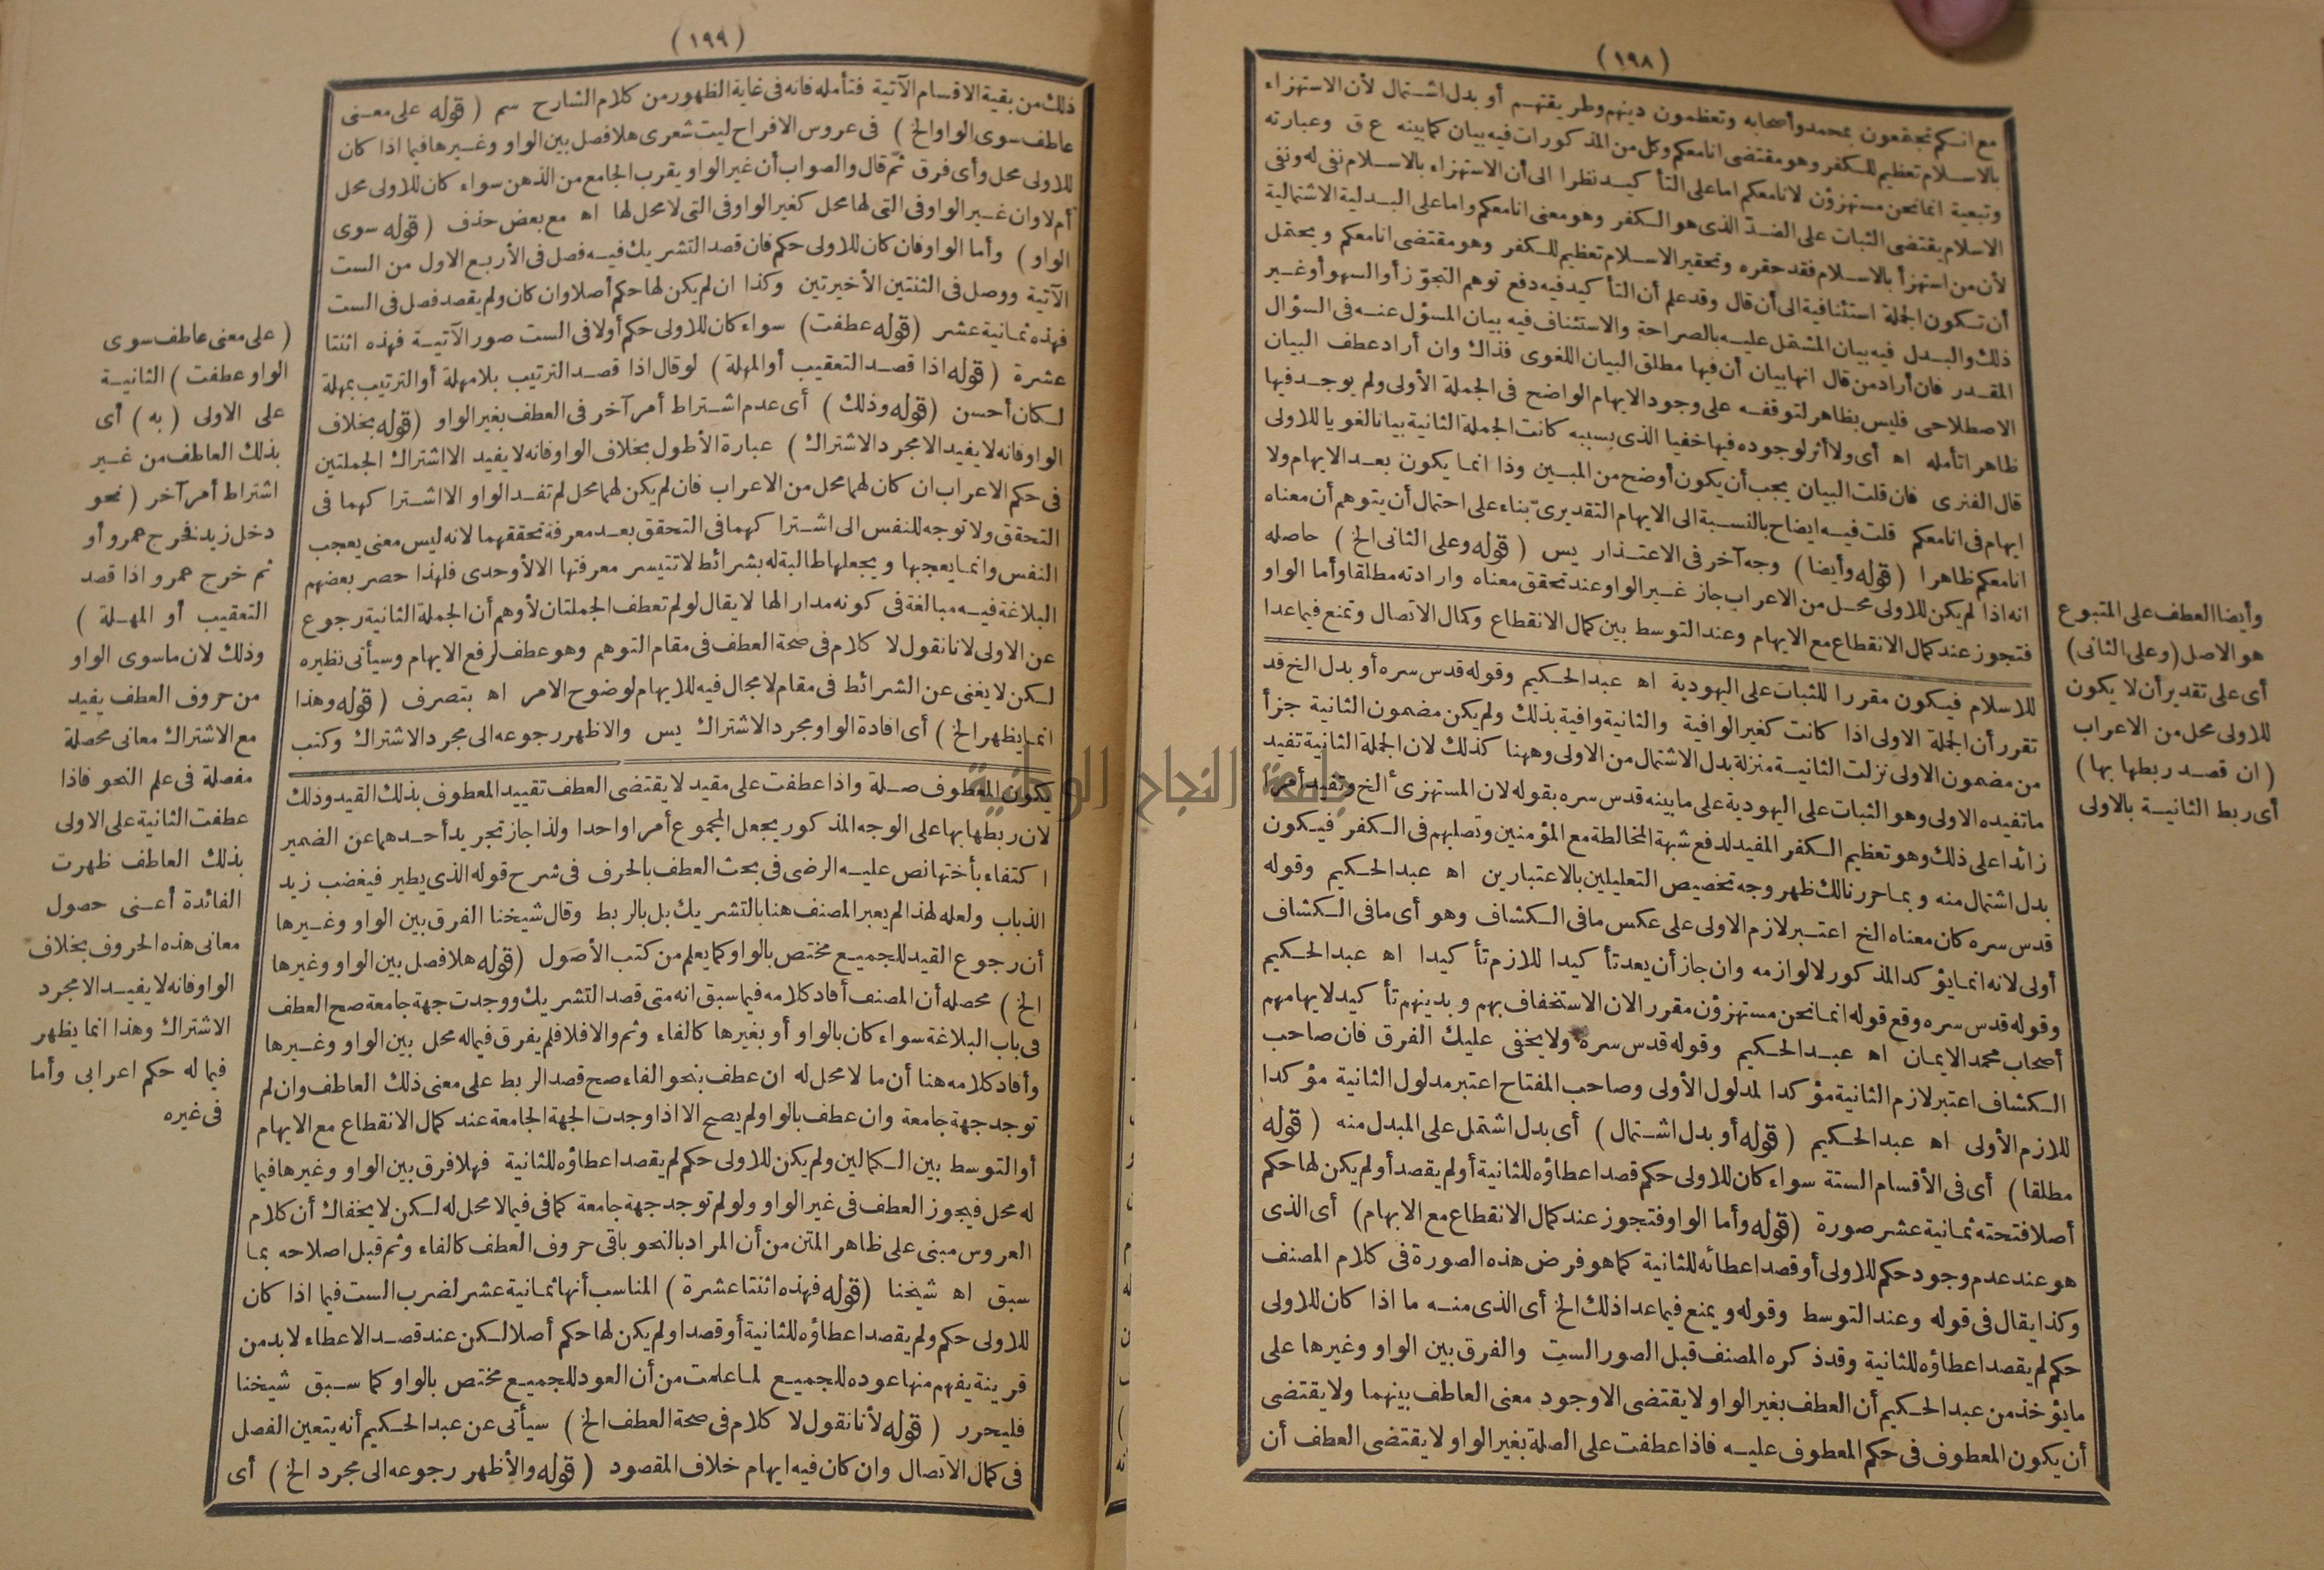 (١٩٨)
مع انكم تجتمعون بمحمد وأصحابه وتعظمون دينهم وطريقتهم أو بدل اشتمال لأن الاستهزاء
بالاسلام تعظيم للكفر وهو مقتضى انا معكم وكل من المذكورات فيه بيان كما بينه ع ق وعبارته
وتبعية انما نحن مستهزؤن لانا معكم اما على التأكيد نظرا الى أن الاستهزاء بالاسلام نفى له ونفى
الاسلام يقتضى الثبات على الضد الذى هو الكفر وهو معنى انا معكم واما على البدلية الاشتمالية
لأن من استهزأ بالاسلام فقد حقره وتحقير الاسلام تعظيم للكفر وهو مقتضى انا معكم ويحتمل
أن تكون الجملة استئنافية الى أن قال وقد علم أن التأكيد فيه دفع توهم التجوّز أو السهو أو غير
ذلك والبدل فيه بيان المشتمل عليه بالصراحة والاستئناف فيه بيان المسؤل عنه فى السؤال
المقدر فان أراد من قال انها بيان أن فيها مطلق البيان اللغوى فذاك وان أراد عطف البيان
الاصطلاحى فليس بظاهر لتوقفه على وجود الايهام الواضح فى الجملة الأولى ولم يوجد فيها
ظاهرا تأمله اه أى ولا أثر لوجوده فيها خفيا الذى بسببه كانت الجملة الثانية بيانا لغويا للاولى
قال الفنرى فان قلت البيان يجب أن يكون أوضح من المبين وذا انما يكون بعد الايهام ولا
ايهام فى انا معكم قلت فيه ايضاح بالنسبة الى الايهام التقديرىّ بناء على احتمال أن يتوهم أن معناه
انا معكم ظاهرا (قوله وأيضا) وجه آخر فى الاعتذار يس (قوله وعلى الثانى الخ) حاصله
انه اذا لم يكن للاولى محل من الاعراب جاز غير الواو عند تحقق معناه وارادته مطلقا وأما الواو
فتجوز عند كمال الانقطاع مع الايهام وعند التوسط بين كمال الانقطاع وكمال الاتصال وتمنع فيما عدا
للاسلام فيكون مقررا للثبات على اليهودية اه عبد الحكيم وقوله قدس سره أو بدل الخ قد
تقرر أن الجملة الاولى اذا كانت كغير الوافية والثانية وافية بذلك ولم يكن مضمون الثانية جزأ
من مضمون الاولى نزلت الثانية منزلة بدل الاشتمال من الاولى وههنا كذلك لان الجملة الثانية تفيد
ما تفيده الاولى وهو الثبات على اليهودية على ما بينه قدس سره بقوله لان المستهزئ الخ وتفيد أمرا
زائدا على ذلك وهو تعظيم الكفر المفيد لدفع شبهة المخالطة مع المؤمنين وتصلبهم فى الكفر فيكون
بدل اشتمال منه وبما حررنا لك ظهر وجه تخصيص التعليلين بالاعتبارين اه عبد الحكيم وقوله
قدس سره كان معناه الخ اعتبر لازم الاولى على عكس ما فى الكشاف وهو أى ما فى الكشاف
أولى لانه انما يؤكد المذكور لا لوازمه وان جاز أن يعد تأكيدا للازم تأكيدا اه عبد الحكيم
وقوله قدس سره وقع قوله انما نحن مستهزؤن مقررا لان الاستخفاف بهم وبدينهم تأكيد لايهامهم
أصحاب محمد الايمان اه عبد الحكيم وقوله قدس سره ولا يخفى عليك الفرق فان صاحب
الكشاف اعتبر لازم الثانية مؤكدا لمدلول الأولى وصاحب المفتاح اعتبر مدلول الثانية مؤكدا
للازم الأولى اه عبد الحكيم (قوله أو بدل اشتمال) أى بدل اشتمل على المبدل منه (قوله
مطلقا) أى فى الأقسام الستة سواء كان للاولى حكم قصد اعطاؤه للثانية أو لم يقصد أو لم يكن لها حكم
أصلا فتحته ثمانية عشر صورة (قوله وأما الواو فتجوز عند كمال الانقطاع مع الايهام) أى الذى
هو عند عدم وجود حكم للاولى أو قصد اعطائه للثانية كما هو فرض هذه الصورة فى كلام المصنف
وكذا يقال فى قوله وعند التوسط وقوله ويمنع فيما عدا ذلك الخ أى الذى منه ما اذا كان للاولى
حكم لم يقصد اعطاؤه للثانية وقد ذكره المصنف قبل الصور الست والفرق بين الواو وغيرها على
ما يؤخذ من عبد الحكيم أن العطف بغير الواو لا يقتضى الا وجود معنى العاطف بينهما ولا يقتضى
أن يكون المعطوف فى حكم المعطوف عليه فاذا عطفت على الصلة بغير الواو لا يقتضى العطف أن
وأيضا العطف على المتبوع
هو الاصل (وعلى الثانى)
أى على تقدير أن لا يكون
للاولى محل من الاعراب
(ان قصد ربطها بها)
أى ربط الثانية بالاولى
(١٩٩)
ذلك من بقية الاقسام الآتية فتأمله فانه فى غاية الظهور من كلام الشارح سم (قوله على معنى
عاطف سوى الواو الخ) فى عروس الافراح ليت شعرى هلا فصل بين الواو وغيرها فيما اذا كان
للاولى محل وأى فرق ثمّ قال والصواب أن غير الواو يقرب الجامع من الذهن سواء كان للاولى محل
أم لا وان غير الواو فى التى لها محل كغير الواو فى التى لا محل لها اه مع بعض حذف (قوله سوى
الواو) وأما الواو فان كان للاولى حكم فان قصد التشريك فيه فصل فى الأربع الاول من الست
الآتية ووصل فى الثنتين الأخيرتين وكذا ان لم يكن لها حكم أصلا وان كان ولم يقصد فصل فى الست
فهذه ثمانية عشر (قوله عطفت) سواء كان للاولى حكم أو لا فى الست صور الآتية فهذه اثنتا
عشرة (قوله اذا قصد التعقيب أو المهلة) لو قال اذا قصد الترتيب بلا مهلة أو الترتيب بمهلة
لكان أحسن (قوله وذلك) أى عدم اشتراط أمر آخر فى العطف بغير الواو (قوله بخلاف
الواو فانه لا يفيد الا مجرد الاشتراك) عبارة الأطول بخلاف الواو فانه لا يفيد الا اشتراك الجملتين
فى حكم الاعراب ان كان لهما محل من الاعراب فان لم يكن لهما محل لم تفد الواو الا اشتراكهما فى
التحقق ولا توجه للنفس الى اشتراكهما فى التحقق بعد معرفة تحققهما لانه ليس معنى يعجب
النفس وانما يعجبها ويجعلها طالبة له بشرائط لا تتيسر معرفتها الا لأوحدى فلهذا حصر بعضهم
البلاغة فيه مبالغة فى كونه مدارا لها لا يقال لو لم تعطف الجملتان لأوهم أن الجملة الثانية رجوع
عن الاولى لانا نقول لا كلام فى صحة العطف فى مقام التوهم وهو عطف لرفع الايهام وسيأتى نظيره
لكن لا يغنى عن الشرائط فى مقام لا مجال فيه للايهام لوضوح الامر اه بتصرف (قوله وهذا
انما يظهر الخ) أى افادة الواو مجرد الاشتراك يس والاظهر رجوعه الى مجرد الاشتراك وكتب
يكون المعطوف صلة واذا عطفت على مقيد لا يقتضى العطف تقييد المعطوف بذلك القيد وذلك
لان ربطها بها على الوجه المذكور يجعل المجموع أمرا واحدا ولذا جاز تجريد أحدهما عن الضمير
اكتفاء بأختها نص عليه الرضى فى بحث العطف بالحرف فى شرح قوله الذى يطير فيغضب زيد
الذباب ولعله لهذا لم يعبر المصنف هنا بالتشريك بل بالربط وقال شيخنا الفرق بين الواو وغيرها
أن رجوع القيد للجميع مختص بالواو كما يعلم من كتب الأصول (قوله هلا فصل بين الواو وغيرها
الخ) محصله أن المصنف أفاد كلامه فيما سبق انه متى قصد التشريك ووجدت جهة جامعة صح العطف
فى باب البلاغة سواء كان بالواو أو بغيرها كالفاء وثم والا فلا فلم يفرق فيما له محل بين الواو وغيرها
وأفاد كلامه هنا أن ما لا محل له ان عطف بنحو الفاء صح قصد الربط على معنى ذلك العاطف وان لم
توجد جهة جامعة وان عطف بالواو لم يصح الا اذا وجدت الجهة الجامعة عند كمال الانقطاع مع الايهام
أو التوسط بين الكمالين ولم يكن للاولى حكم لم يقصد اعطاؤه للثانية فهلا فرق بين الواو وغيرها فيما
له محل فيجوز العطف فى غير الواو ولو لم توجد جهة جامعة كما فى فيما لا محل له لكن لا يخفاك أن كلام
العروس مبنى على ظاهر المتن من أن المراد بالنحو باقى حروف العطف كالفاء وثم قبل اصلاحه بما
سبق اه شيخنا (قوله فهذه اثنتا عشرة) المناسب أنها ثمانية عشر لضرب الست فيما اذا كان
للاولى حكم ولم يقصد اعطاؤه للثانية أو قصد او لم يكن لها حكم أصلا لكن عند قصد الاعطاء لا بد من
قرينة يفهم منها عوده للجميع لما علمت من أن العود للجميع مختص بالواو كما سبق شيخنا
فليحرر (قوله لأنا نقول لا كلام فى صحة العطف الخ) سيأتى عن عبد الحكيم أنه يتعين الفصل
فى كمال الاتصال وان كان فيه ايهام خلاف المقصود (قوله والأظهر رجوعه الى مجرد الخ) أى
(على معنى عاطف سوى
الواو عطفت) الثانية
على الاولى (به) أى
بذلك العاطف من غير
اشتراط أمر آخر (نحو
دخل زيد فخرج عمرو أو
ثم خرج عمرو اذا قصد
التعقيب أو المهلة)
وذلك لان ما سوى الواو
من حروف العطف يفيد
مع الاشتراك معانى محصلة
مفصلة فى علم النحو فاذا
عطفت الثانية على الاولى
بذلك العاطف ظهرت
الفائدة أعنى حصول
معانى هذه الحروف بخلاف
الواو فانه لا يفيد الا مجرد
الاشتراك وهذا انما يظهر
فيما له حكم اعرابى وأما
فى غيره
جامعة النجاح الوطنية